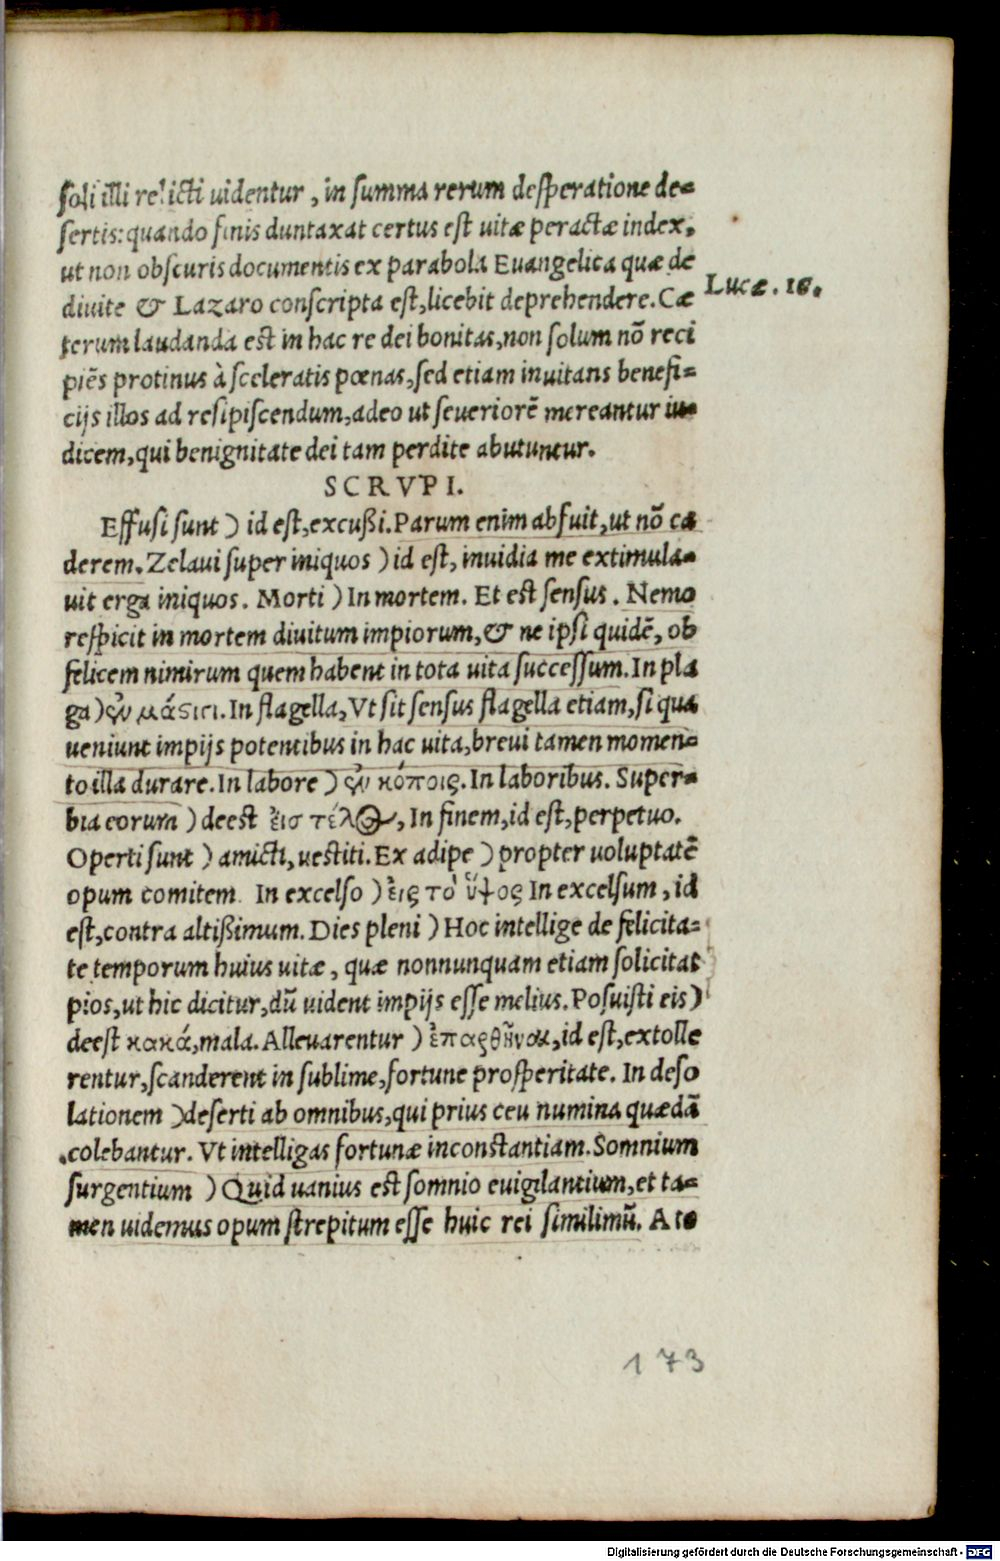 soli illi relicti uidentur, in summa rerum desperatione de-
sertis: quando finis duntaxat certus est uitæ peractæ index,
ut non obscuris documentis ex parabola Euangelica quæ de
diuite & Lazaro conscripta est, licebit deprehendere. Cæ
Lucæ. 16.
terum laudanda est in hac re dei bonitas, non solum nõ reci
piẽs protinus à sceleratis pœnas, sed etiam inuitans benefi-
cijs illos ad resipiscendum, adeo ut seueriorẽ mereantur iu-
dicem, qui benignitate dei tam perdite abutuntur.
SCRVPI.
Effusi sunt) id est, excußi. Parum enim abfuit, ut nõ ca
derem. Zelaui super iniquos) id est, inuidia me extimula-
uit erga iniquos. Morti) In mortem. Et est sensus. Nemo
respicit in mortem diuitum impiorum, & ne ipsi quidẽ, ob
felicem nimirum quem habent in tota uita successum. In pla
ga) ἐν μάστιγι. In flagella, Vt sit sensus flagella etiam, si qua
ueniunt impijs potentibus in hac uita, breui tamen momen-
to illa durare. In labore) ἐν κόποις. In laboribus. Super-
bia eorum) deest εἰσ τέλος, In finem, id est, perpetuo.
Operti sunt) amicti, uestiti. Ex adipe) propter uoluptatẽ
opum comitem. In excelso) εἰς τὸ ὕψος In excelsum, id
est, contra altißimum. Dies pleni) Hoc intellige de felicita-
te temporum huius uitæ, quæ nonnunquam etiam solicitat
pios, ut hic dicitur, dũ uident impijs esse melius. Posuisti eis)
deest κακά, mala. Alleuarentur) ἐπαρθῆναι, id est, extolle
rentur, scanderent in sublime, fortune prosperitate. In deso
lationem) deserti ab omnibus, qui prius ceu numina quædã
colebantur. Vt intelligas fortunæ inconstantiam. Somnium
surgentium) Quid uanius est somnio euigilantium, et ta-
men uidemus opum strepitum esse huic rei similimũ. A te
173
Digitalisierung gefördert durch die Deutsche Forschungsgemeinschaft - DFG